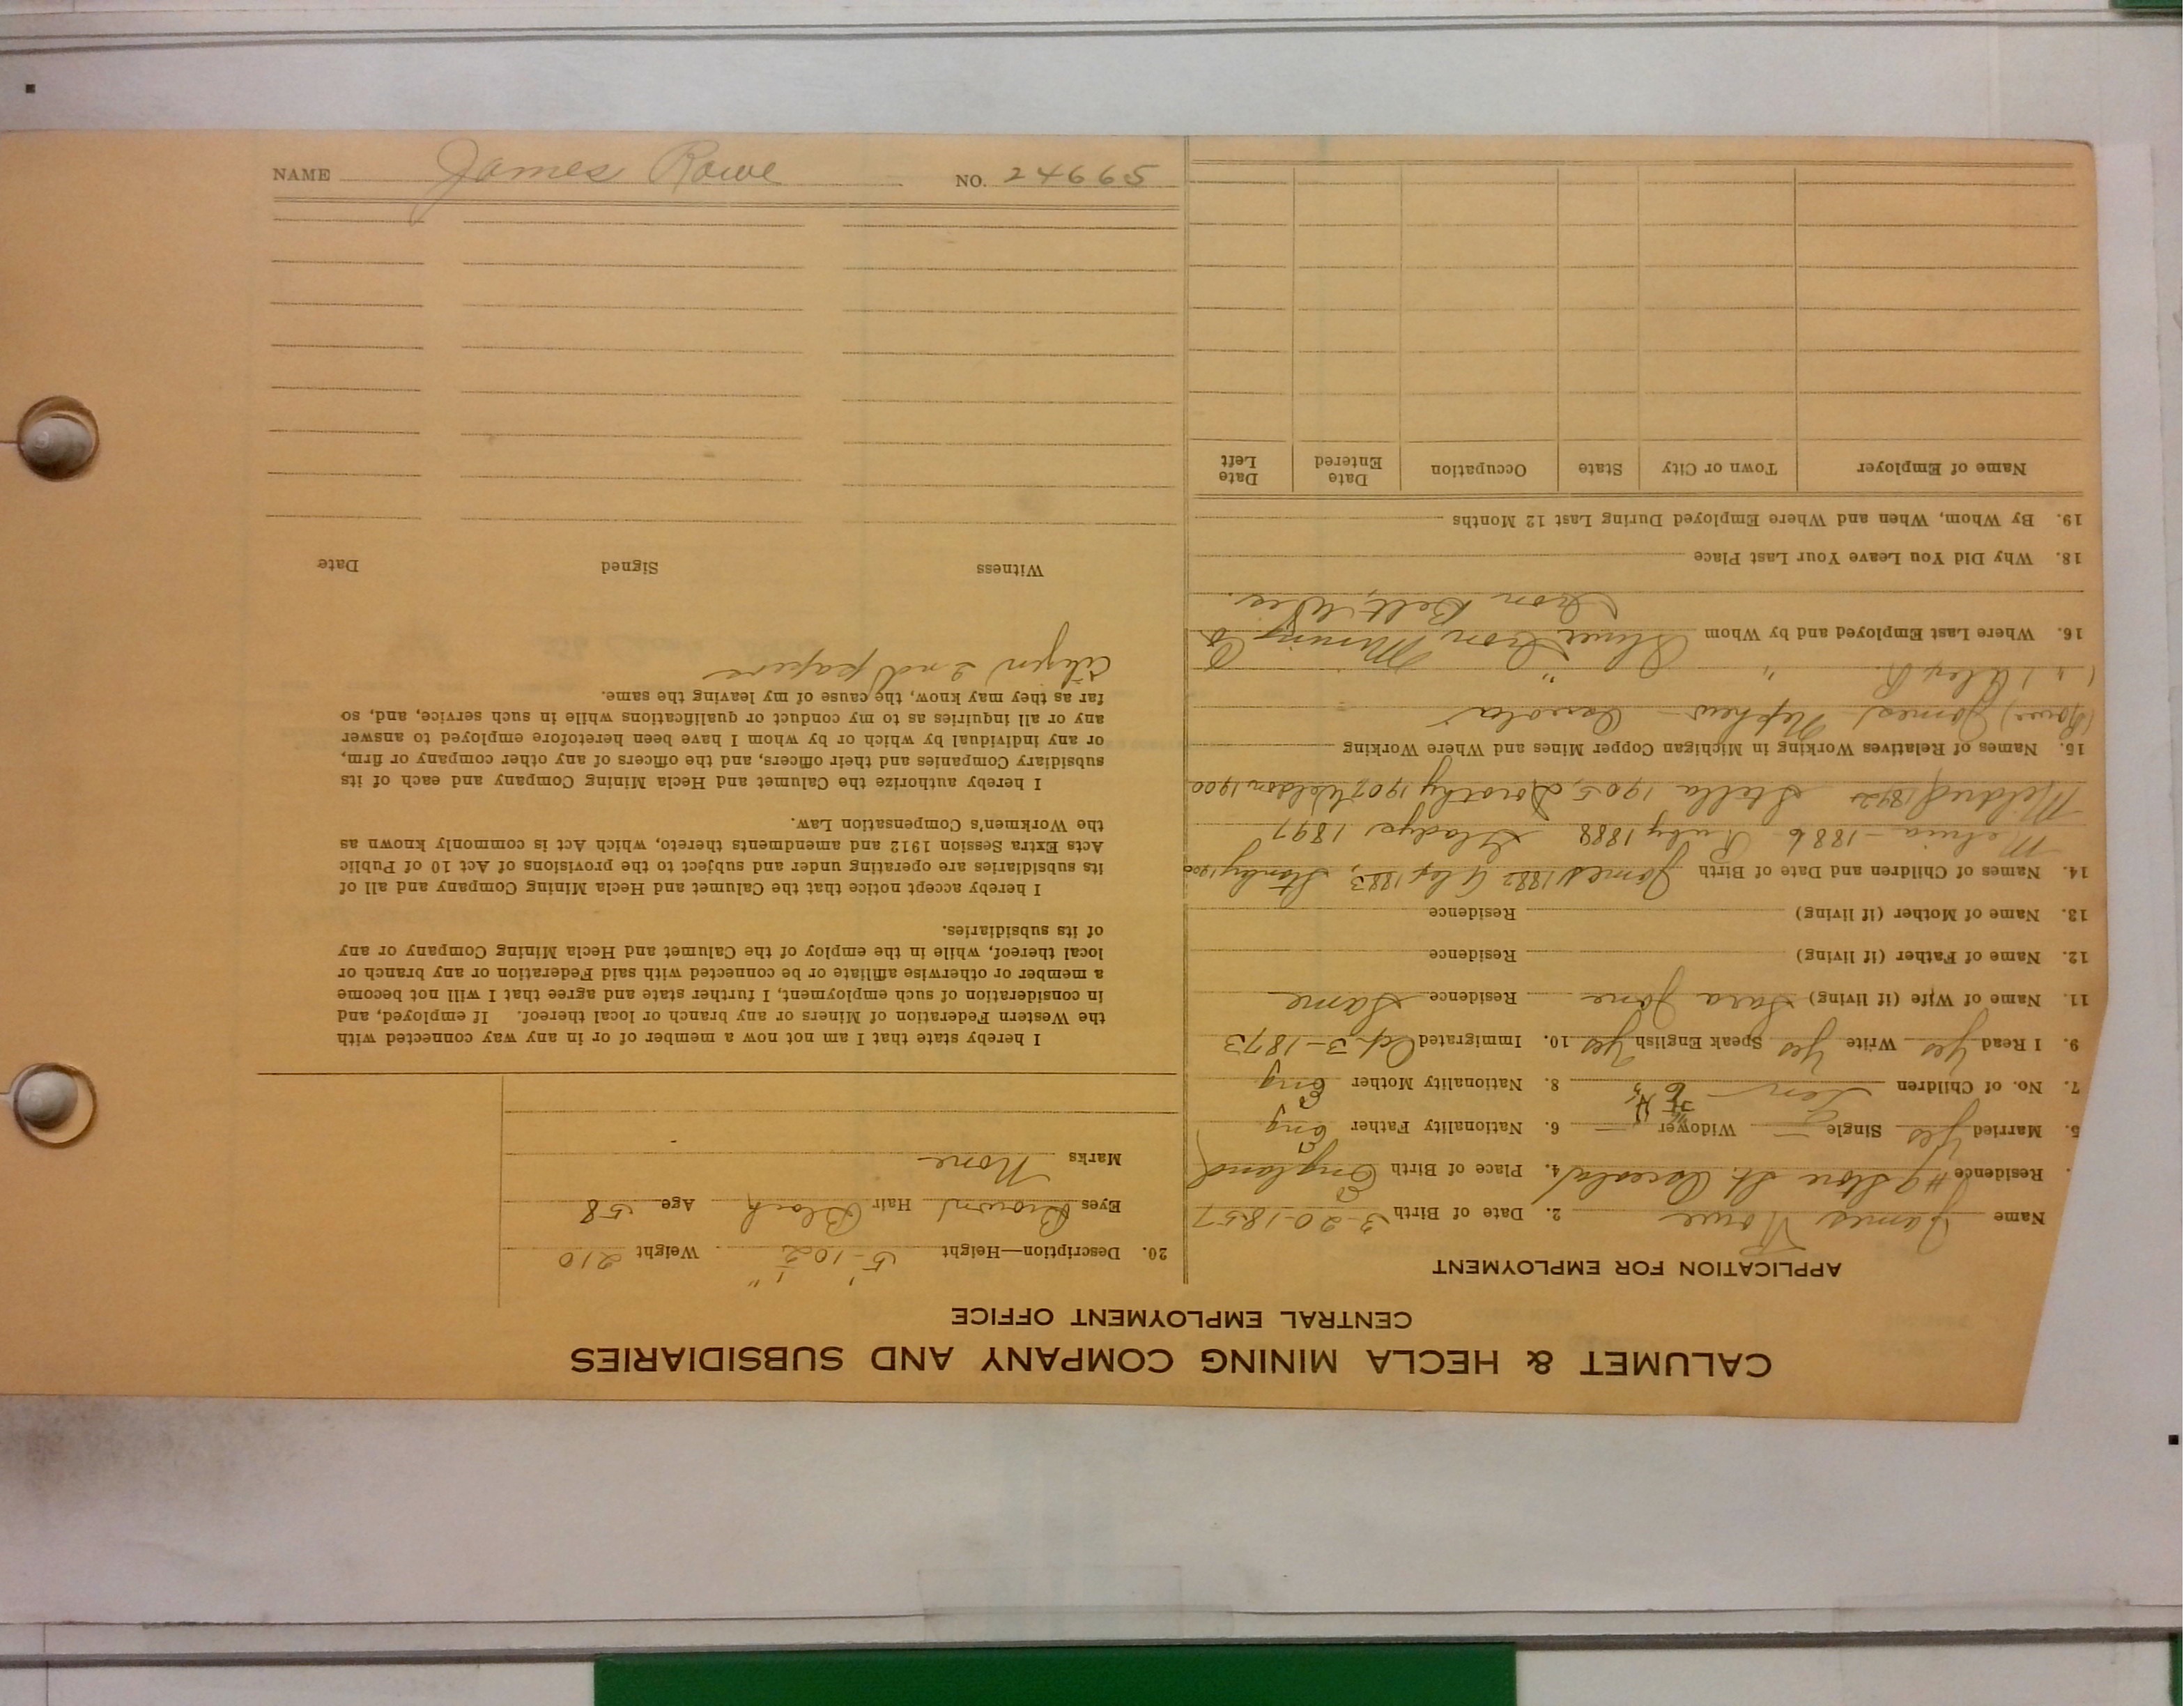 CALUMET & HECLA MINING COMPANY AND SUBSIDIARIES
CENTRAL EMPLOYMENT OFFICE
APPLICATION FOR EMPLOYMENT
Name James Rowe 2. Date of Birth 3-20-1857
Residence #9 Stone St. Osceola 4. Place of Birth England
5. Married Yes Single — Widower — 6. Nationality Father Eng
7. No. of Children Ten 8. Nationality Mother Eng
9. I Read Yes Write Yes Speak English Yes 10. Immigrated Oct-3-1873
11. Name of Wife (if living) Sara Jane Residence Same
12. Name of Father (if living) Residence
13. Name of Mother (if living) Residence
14. Names of Children and Date of Birth James 1882 Aley 1883, Stanley 1900
1886 Ruby 1888 Gladys 1897
Mildred 1892 Stella 1905, Dorothy 1907 Nelson 1900
15. Names of Relatives Working in Michigan Copper Mines and Where Working
(Rowe) James Nephew - Osceola
( " ) Aley R. " "
16. Where Last Employed and by Whom Iron Mining Co
Iron Belt, Wis.
18. Why Did You Leave Your Last Place
19. By Whom, When and Where Employed During Last 12 Months
Name of Employer Town or City State Occupation Date Entered Date Left
20. Description—Height 5'-10 1/2" Weight 210
Eyes Brown Hair Black Age 58
Marks None
I hereby state that I am not now a member of or in any way connected with
the Western Federation of Miners or any branch or local thereof. If employed, and
in consideration of such employment, I further state and agree that I will not become
a member or otherwise affiliate or be connected with said Federation or any branch or
local thereof, while in the employ of the Calumet and Hecla Mining Company or any
of its subsidiaries.
I hereby accept notice that the Calumet and Hecla Mining Company and all of
its subsidiaries are operating under and subject to the provisions of Act 10 of Public
Acts Extra Session 1912 and amendments thereto, which Act is commonly known as
the Workmen's Compensation Law.
I hereby authorize the Calumet and Hecla Mining Company and each of its
subsidiary Companies and their officers, and the officers of any other company or firm,
or any individual by which or by whom I have been heretofore employed to answer
any or all inquiries as to my conduct or qualifications while in such service, and, so
far as they may know, the cause of my leaving the same.
Citizen 2nd papers
Witness Signed Date
NAME James Rowe NO. 24665